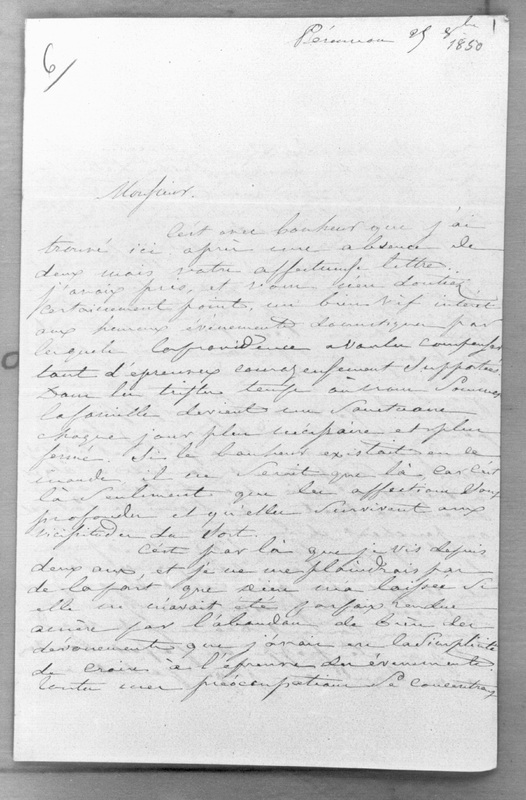 6/
25 8bre
1850
Monsieur.
C'est avec bonheur que j'ai
trouvé ici après une absence de
deux mois votre affectueuse lettre.
j'avais pris, et vous n'en doutiez
certainement point, un bien vif intérêt
aux heureux évènements domestiques par
lesquels la providence a voulu compenser
tant d'épreuves courageusement supportées
Dans les tristes temps où nous sommes
la famille devient un sanctuaire
chaque jour plus nécessaire et plus
fermé. Si le bonheur existait en ce
monde il ne serait que là, car c'est
là seulement que les affections sont
profondes et qu'elles survivent aux
vicissitudes du sort.
C'est par là que je vis depuis
deux ans, et je ne me plaindrais pas
de la part que Dieu m'a laissée si
elle ne m'avait été parfois rendue
amère par l'abandon de bien des
dévouements que j'avais eu la simplicité
de croire à l'épreuve des évènements.
toutes mes préoccupations se concentrent